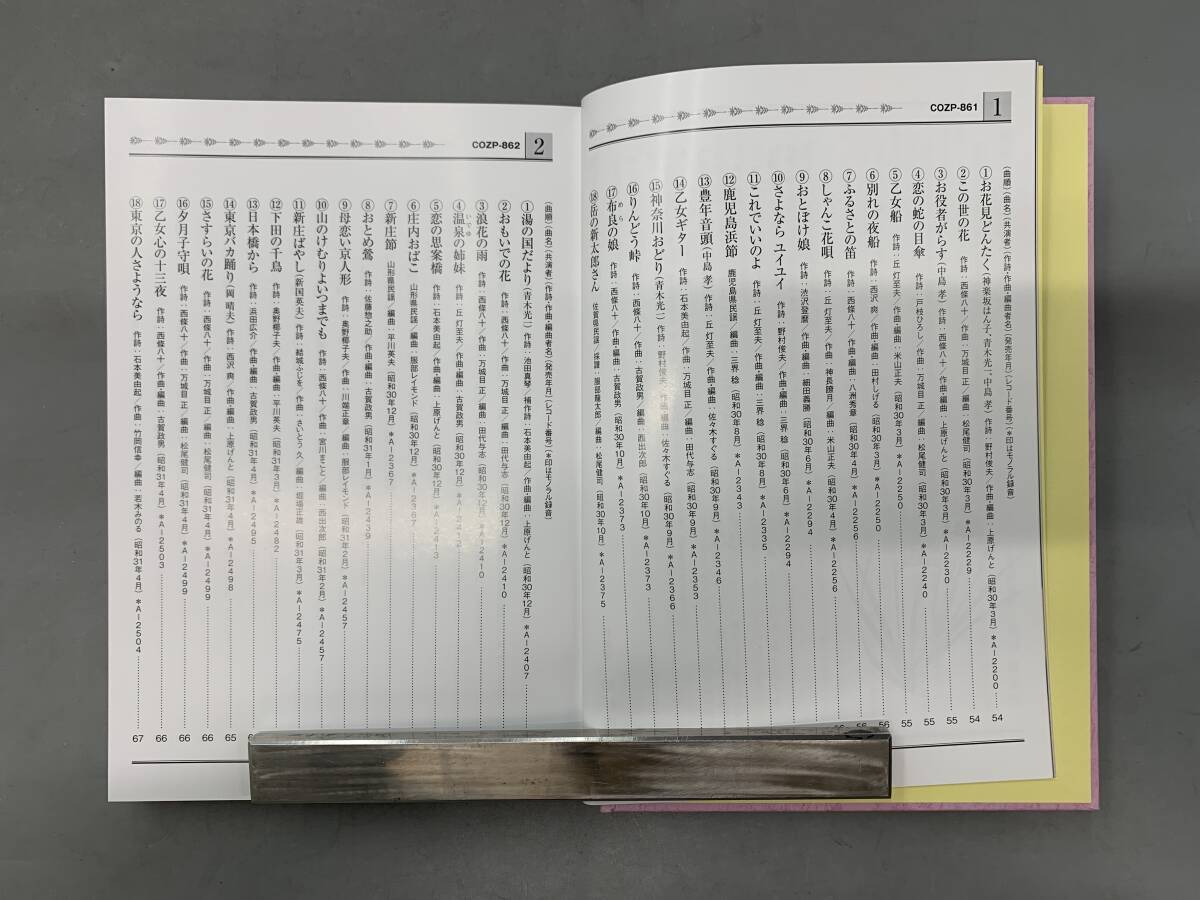 COZP-861 1
(曲順)(曲名)(共演者)(作詩・作曲・編曲者名)(発売年月)(レコード番号)(*印はモノラル録音)
①お花見どんたく(神楽坂はん子、青木光一、中島 孝) 作詩:野村俊夫/作曲・編曲:上原げんと(昭和30年3月)*A-2200 54
②この世の花 作詩:西條八十/作曲:万城目 正/編曲:松尾健司(昭和30年3月)*A-2229 54
③お役者がらす(中島 孝) 作詩:西條八十/作曲・編曲:上原げんと(昭和30年3月)*A-2230 55
④恋の蛇の目傘 作詩:戸枝ひろし/作曲:万城目 正/編曲:松尾健司(昭和30年3月)*A-2240 55
⑤乙女船 作詩:丘 灯至夫/作曲・編曲:米山正夫(昭和30年3月)*A-2250 55
⑥別れの夜船 作詩:西沢 爽/作曲・編曲:田村しげる(昭和30年3月)*A-2250 56
⑦ふるさとの笛 作詩:丘 灯至夫/作曲・編曲:八洲秀章(昭和30年4月)*A-2256 56
⑧しゃんこ花唄 作詩:丘 灯至夫/作曲:神長瞭月/編曲:米山正夫(昭和30年4月)*A-2256
⑨おとぼけ娘 作詩:渋沢登磨/作曲・編曲:細田義勝(昭和30年6月)*A-2294
⑩さよなら ユイユイ 作詩:野村俊夫/作曲・編曲:三界 稔(昭和30年6月)*A-2294
⑪これでいいのよ 作詩:丘 灯至夫/作曲・編曲:三界 稔(昭和30年8月)*A-2335
⑫鹿児島浜節 鹿児島県民謡/編曲:三界 稔(昭和30年8月)*A-2343
⑬豊年音頭(中島 孝) 作詩:丘 灯至夫/作曲・編曲:佐々木すぐる(昭和30年9月)*A-2346
⑭乙女ギター 作詩:石本美由起/作曲:万城目 正/編曲:田代与志(昭和30年9月)*A-2353
⑮神奈川おどり(青木光一) 作詩:野村俊夫/作曲・編曲:佐々木すぐる(昭和30年9月)*A-2366
⑯りんどう峠 作詩:西條八十/作曲:古賀政男/編曲:西出次郎(昭和30年10月)*A-2373
⑰布良の娘 作詩:西條八十/作曲・編曲:古賀政男(昭和30年10月)*A-2373
めら
⑱岳の新太郎さん 佐賀県民謡/採譜:服部龍太郎/編曲:松尾健司(昭和30年10月)*A-2375
COZP-862 2
(曲順)(曲名)(共演者)(作詩・作曲・編曲者名)(発売年月)(レコード番号)(*印はモノラル録音)
①湯の国だより(青木光一) 作詩:池田真琴/補作詩:石本美由起/作曲・編曲:上原げんと(昭和30年12月)*A-2407
②おもいでの花 作詩:西條八十/作曲:万城目 正/編曲:松尾健司(昭和30年12月)*A-2410
③浪花の雨 作詩:西條八十/作曲:万城目 正/編曲:田代与志(昭和30年12月)*A-2410
④温泉の姉妹 作詩:丘 灯至夫/作曲・編曲:古賀政男(昭和30年12月)*A-2413
いでゆ
⑤恋の思案橋 作詩:石本美由起/作曲・編曲:上原げんと(昭和30年12月)*A-2413
⑥庄内おばこ 山形県民謡/編曲:服部レイモンド(昭和30年12月)*A-2367
⑦新庄節 山形県民謡/編曲:平川英夫(昭和30年12月)*A-2367
⑧おとめ鶯 作詩:佐藤惣之助/作曲・編曲:古賀政男(昭和31年1月)*A-2439
⑨母恋い京人形 作詩:奥野椰子夫/作曲:川端正章/編曲:服部レイモンド(昭和31年2月)*A-2457
⑩山のけむりよいつまでも 作詩:西條八十/作曲:宮川まこと/編曲:西出次郎(昭和31年2月)*A-2457
⑪新庄ばやし(新国英夫) 作詩:結城ふじを/作曲:さいとう 久/編曲:堀場正雄(昭和31年3月)*A-2475
⑫下田の千鳥 作詩:奥野椰子夫/作曲・編曲:平川英夫(昭和31年3月)*A-2482
⑬日本橋から 作詩:浜田広介/作曲・編曲:古賀政男(昭和31年4月)*A-2495
⑭東京バカ踊り(岡 晴夫) 作詩:西沢 爽/作曲・編曲:上原げんと(昭和31年4月)*A-2498 65
⑮さすらいの花 作詩:西條八十/作曲:万城目 正/編曲:松尾健司(昭和31年4月)*A-2499 66
⑯夕月子守唄 作詩:西條八十/作曲:万城目 正/編曲:松尾健司(昭和31年4月)*A-2499 66
⑰乙女心の十三夜 作詩:西條八十/作曲・編曲:古賀政男(昭和31年4月)*A-2503 66
⑱東京の人さようなら 作詩:石本美由起/作曲:竹岡信幸/編曲:若木みのる(昭和31年4月)*A-2504 67